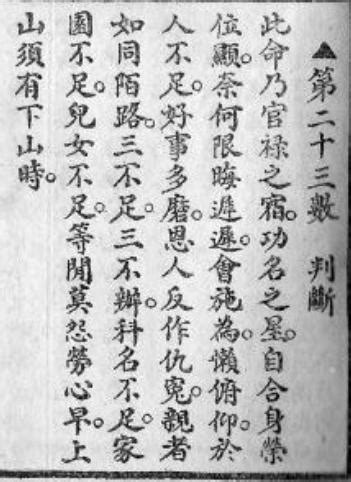 ▲第二十三數 判斷
此命乃官禄之宿。功名之星。自合身榮
位顯。奈何限晦遲遲。會施為。懶俯仰。於
人不足。好事多磨。恩人反作仇寃。親者
如同陌路。三不足。三不辦。科名不足。家
園不足。兒女不足。等閒莫怨勞心早。上
山須有下山時。